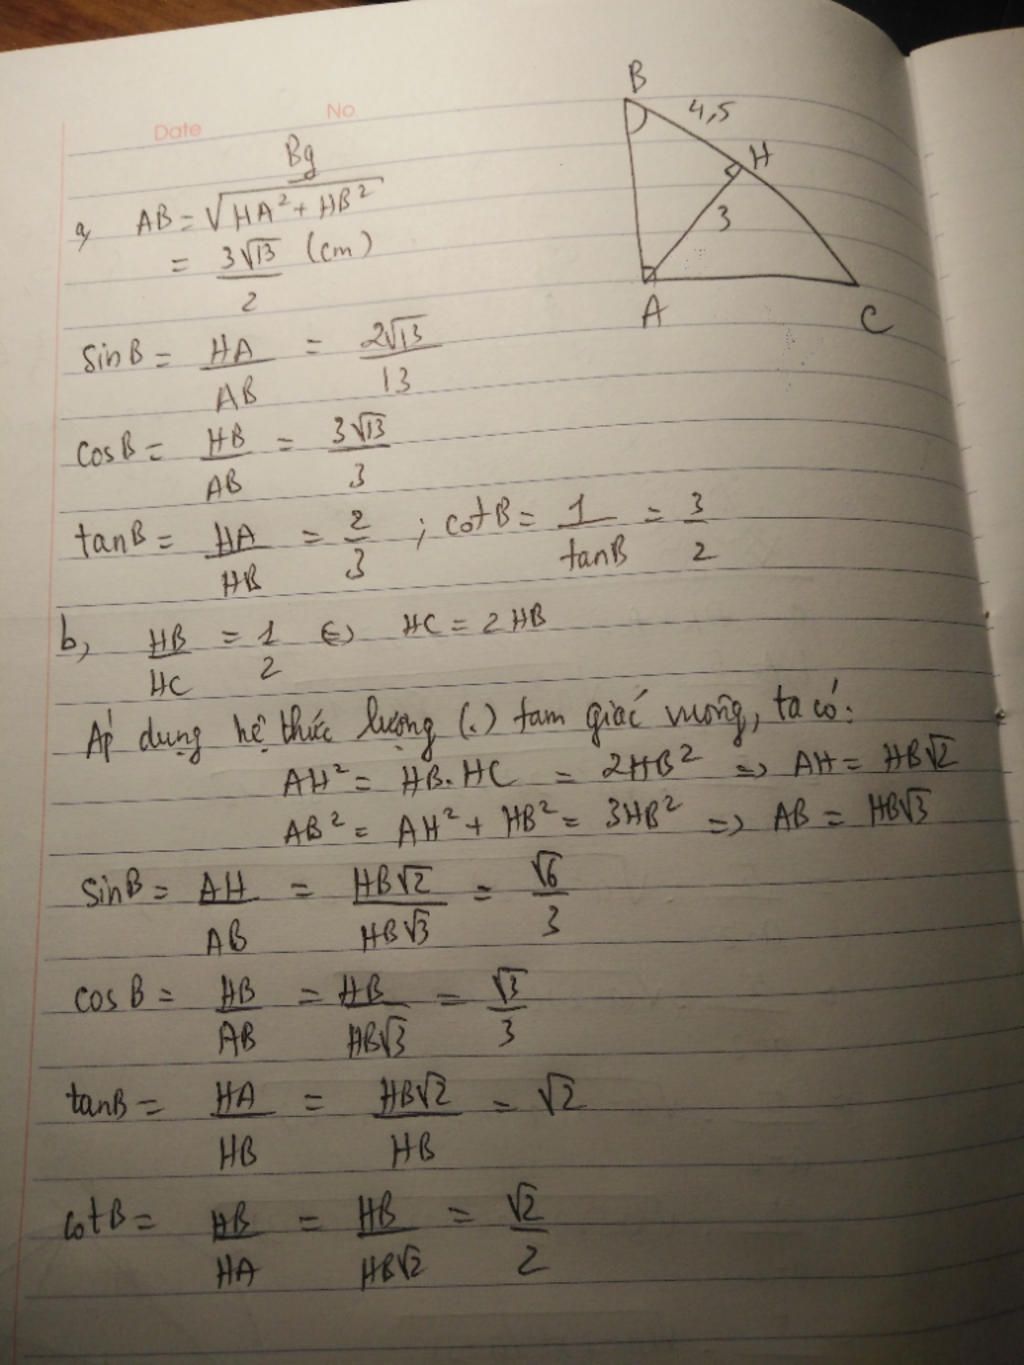 Date No.
Bg
B
4,5
H
3
A
C
a, AB = √HA² + HB²
= 3√13/2 (cm)
sinB = HA/AB = 2√13/13
cosB = HB/AB = 3√13/3
tanB = HA/HB = 2/3 ; cotB = 1/tanB = 3/2
b, HB/HC = 1/2 ⇔ HC = 2HB
Áp dụng hệ thức lượng (.) tam giác vuông, ta có:
AH² = HB.HC = 2HB² => AH = HB√2
AB² = AH² + HB² = 3HB² => AB = HB√3
sinB = AH/AB = HB√2/HB√3 = √6/3
cosB = HB/AB = HB/HB√3 = √3/3
tanB = HA/HB = HB√2/HB = √2
cotB = HB/HA = HB/HB√2 = √2/2